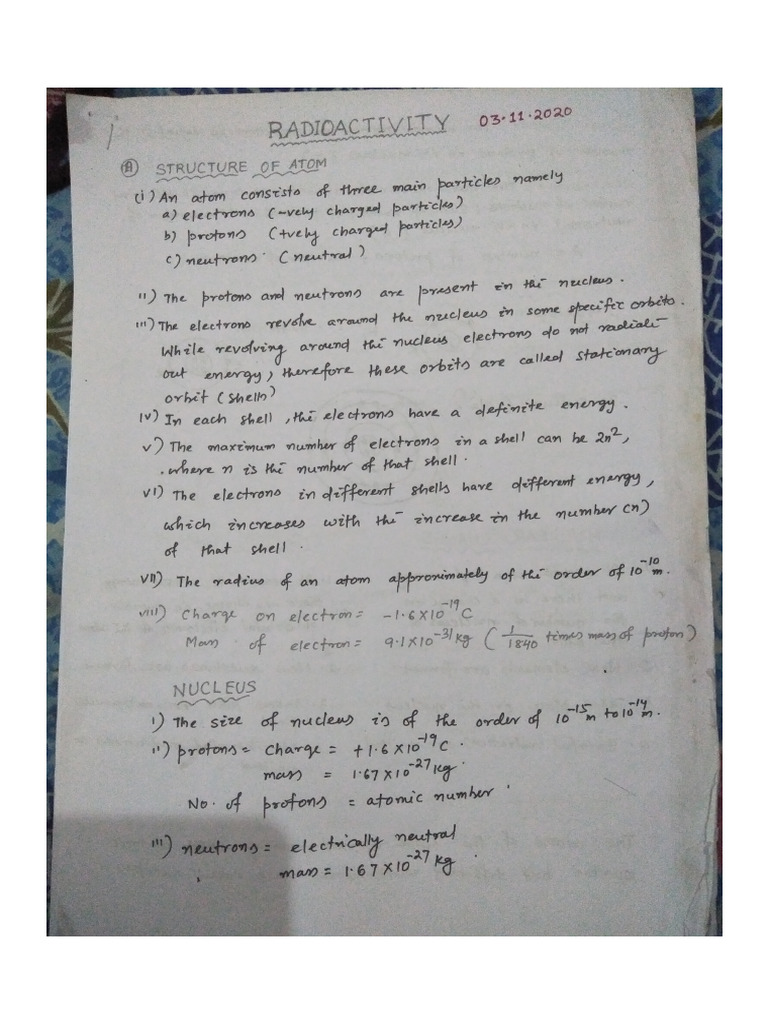 RADIOACTIVITY 03.11.2020
A STRUCTURE OF ATOM
(i) An atom consists of three main particles namely
a) electrons (-vely charged particles)
b) protons (+vely charged particles)
c) neutrons (neutral)
ii) The protons and neutrons are present in the nucleus.
iii) The electrons revolve around the nucleus in some specific orbits.
While revolving around the nucleus electrons do not radiate
out energy, therefore these orbits are called stationary
orbit (shells)
iv) In each shell, the electrons have a definite energy.
v) The maximum number of electrons in a shell can be 2n²,
where n is the number of that shell.
vi) The electrons in different shells have different energy,
which increases with the increase in the number (n)
of that shell.
vii) The radius of an atom approximately of the order of 10⁻¹⁰ m.
viii) Charge on electron = -1.6×10⁻¹⁹ C
Mass of electron = 9.1×10⁻³¹ kg (1/1840 times mass of proton)
NUCLEUS
i) The size of nucleus is of the order of 10⁻¹⁵ m to 10⁻¹⁴ m.
ii) protons = charge = +1.6×10⁻¹⁹ C.
mass = 1.67×10⁻²⁷ kg.
No. of protons = atomic number.
iii) neutrons = electrically neutral
mass = 1.67×10⁻²⁷ kg.